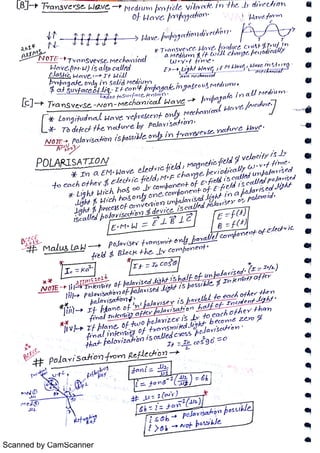 [B]→ Transverse Wave → Medium particle vibrate in the ⊥r direction
of Wave propagation.
Wave form
→ Wave propagation direction
* Transverse Wave produce crust & truf in
a medium & it will change periodically
w.r.t time.
Ex→ Light Wave, E.M Wave, Wave in string
NOTE → Transverse mechanical
Wave (M.W) is also called
elastic wave → It will
Propagate only in solid medium
& at surface of liq. It can't propagate in gaseous medium.
[C]→ Transverse-Non-mechanical Wave → Propagate in all medium
* Longitudinal Wave represent only Mechanical Wave
* To detect the nature by Polarisation.
NOTE → Polarisation is possible only in transverse nature Wave.
POLARISATION
* In a EM-Wave electric field, Magnetic field & velocity is ⊥r
to each other & electric field, M.F change periodically w.r.t time.
* Light Wich has ∞ ⊥r component of E-field is called unpolarised
light & Wich has only one component of E-field is called polarised
light & process of conversion unpolarised light in a polarised light
is called polarisation & device is called Polariser or, Polaroid.
E.M.W = E⃗ ⊥ B⃗ ⊥ C⃗
E = f(t)
B = f(t)
# Malus Law → Polariser transmit only parallel component of electric
field & Block the ⊥r component.
I₀ = KA²
I = I₀ cos²θ
* NOTE → (i)→ Intensity of polarised light is half of unpolarised. (I = I₀/2)
(ii)→ Polarisation of polarised light is possible & Intensity after
polarisation.
(iii)→ If plane of 'n' polariser is parallel to each other then
final intensity after polarisation half of Incident light.
(iv)→ If plane of two polarizer is ⊥r to each other than
final intensity of transmitted light become zero &
that polarisation is called cross polarisation.
I₂ = I₀/2 cos²90 = 0
# Polarisation from Reflection →
tan i = μ₂/μ₁
i = tan⁻¹(μ₂/μ₁) = θb
# μ = 1 (air)
θb = i = tan⁻¹(μ₂)
i ≤ θb → Polarisation possible
i > θb → not possible
Scanned by CamScanner